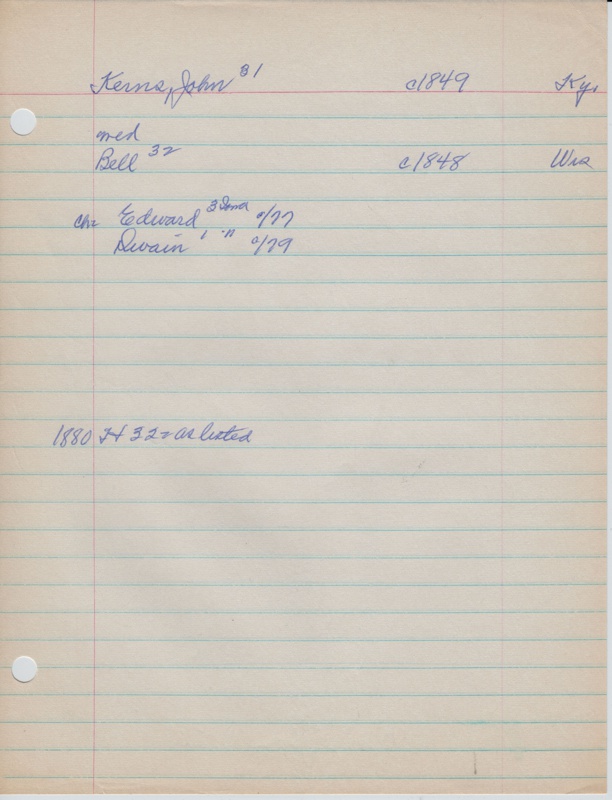 Kerns, John 31 c1849 Ky.
med
Bell 32 c1848 Wis
ch= Edward 3 Ind c/77
Dwain 1 " c/79
1880 H 32= as listed